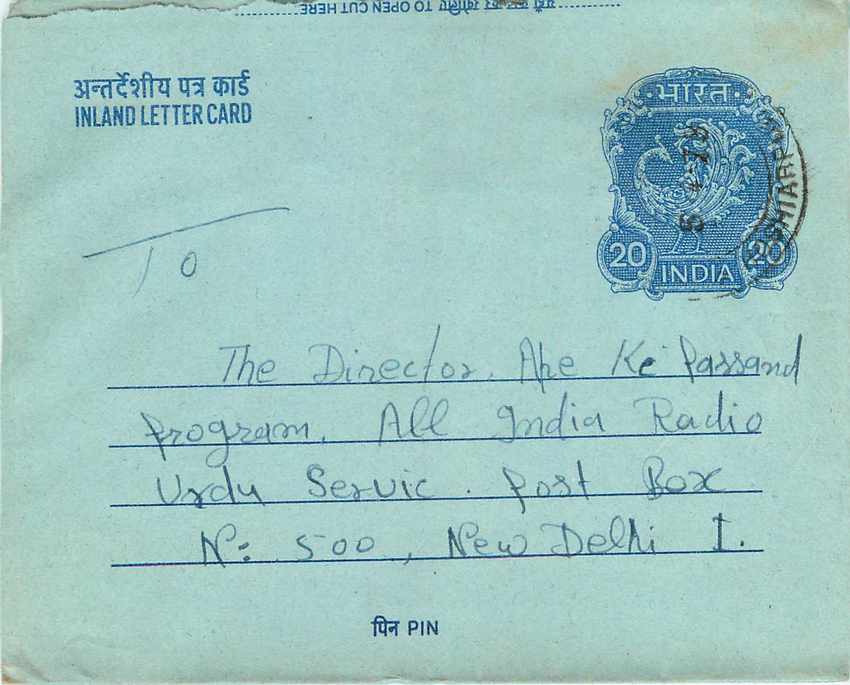 यहाँ काट कर खोलिए TO OPEN CUT HERE
अन्तर्देशीय पत्र कार्ड
INLAND LETTER CARD
भारत
20
20
INDIA
To
The Director. Ape Ke Passand
Program, All India Radio
Urdu Servic. Post Box
N: 500, New Delhi I.
पिन PIN